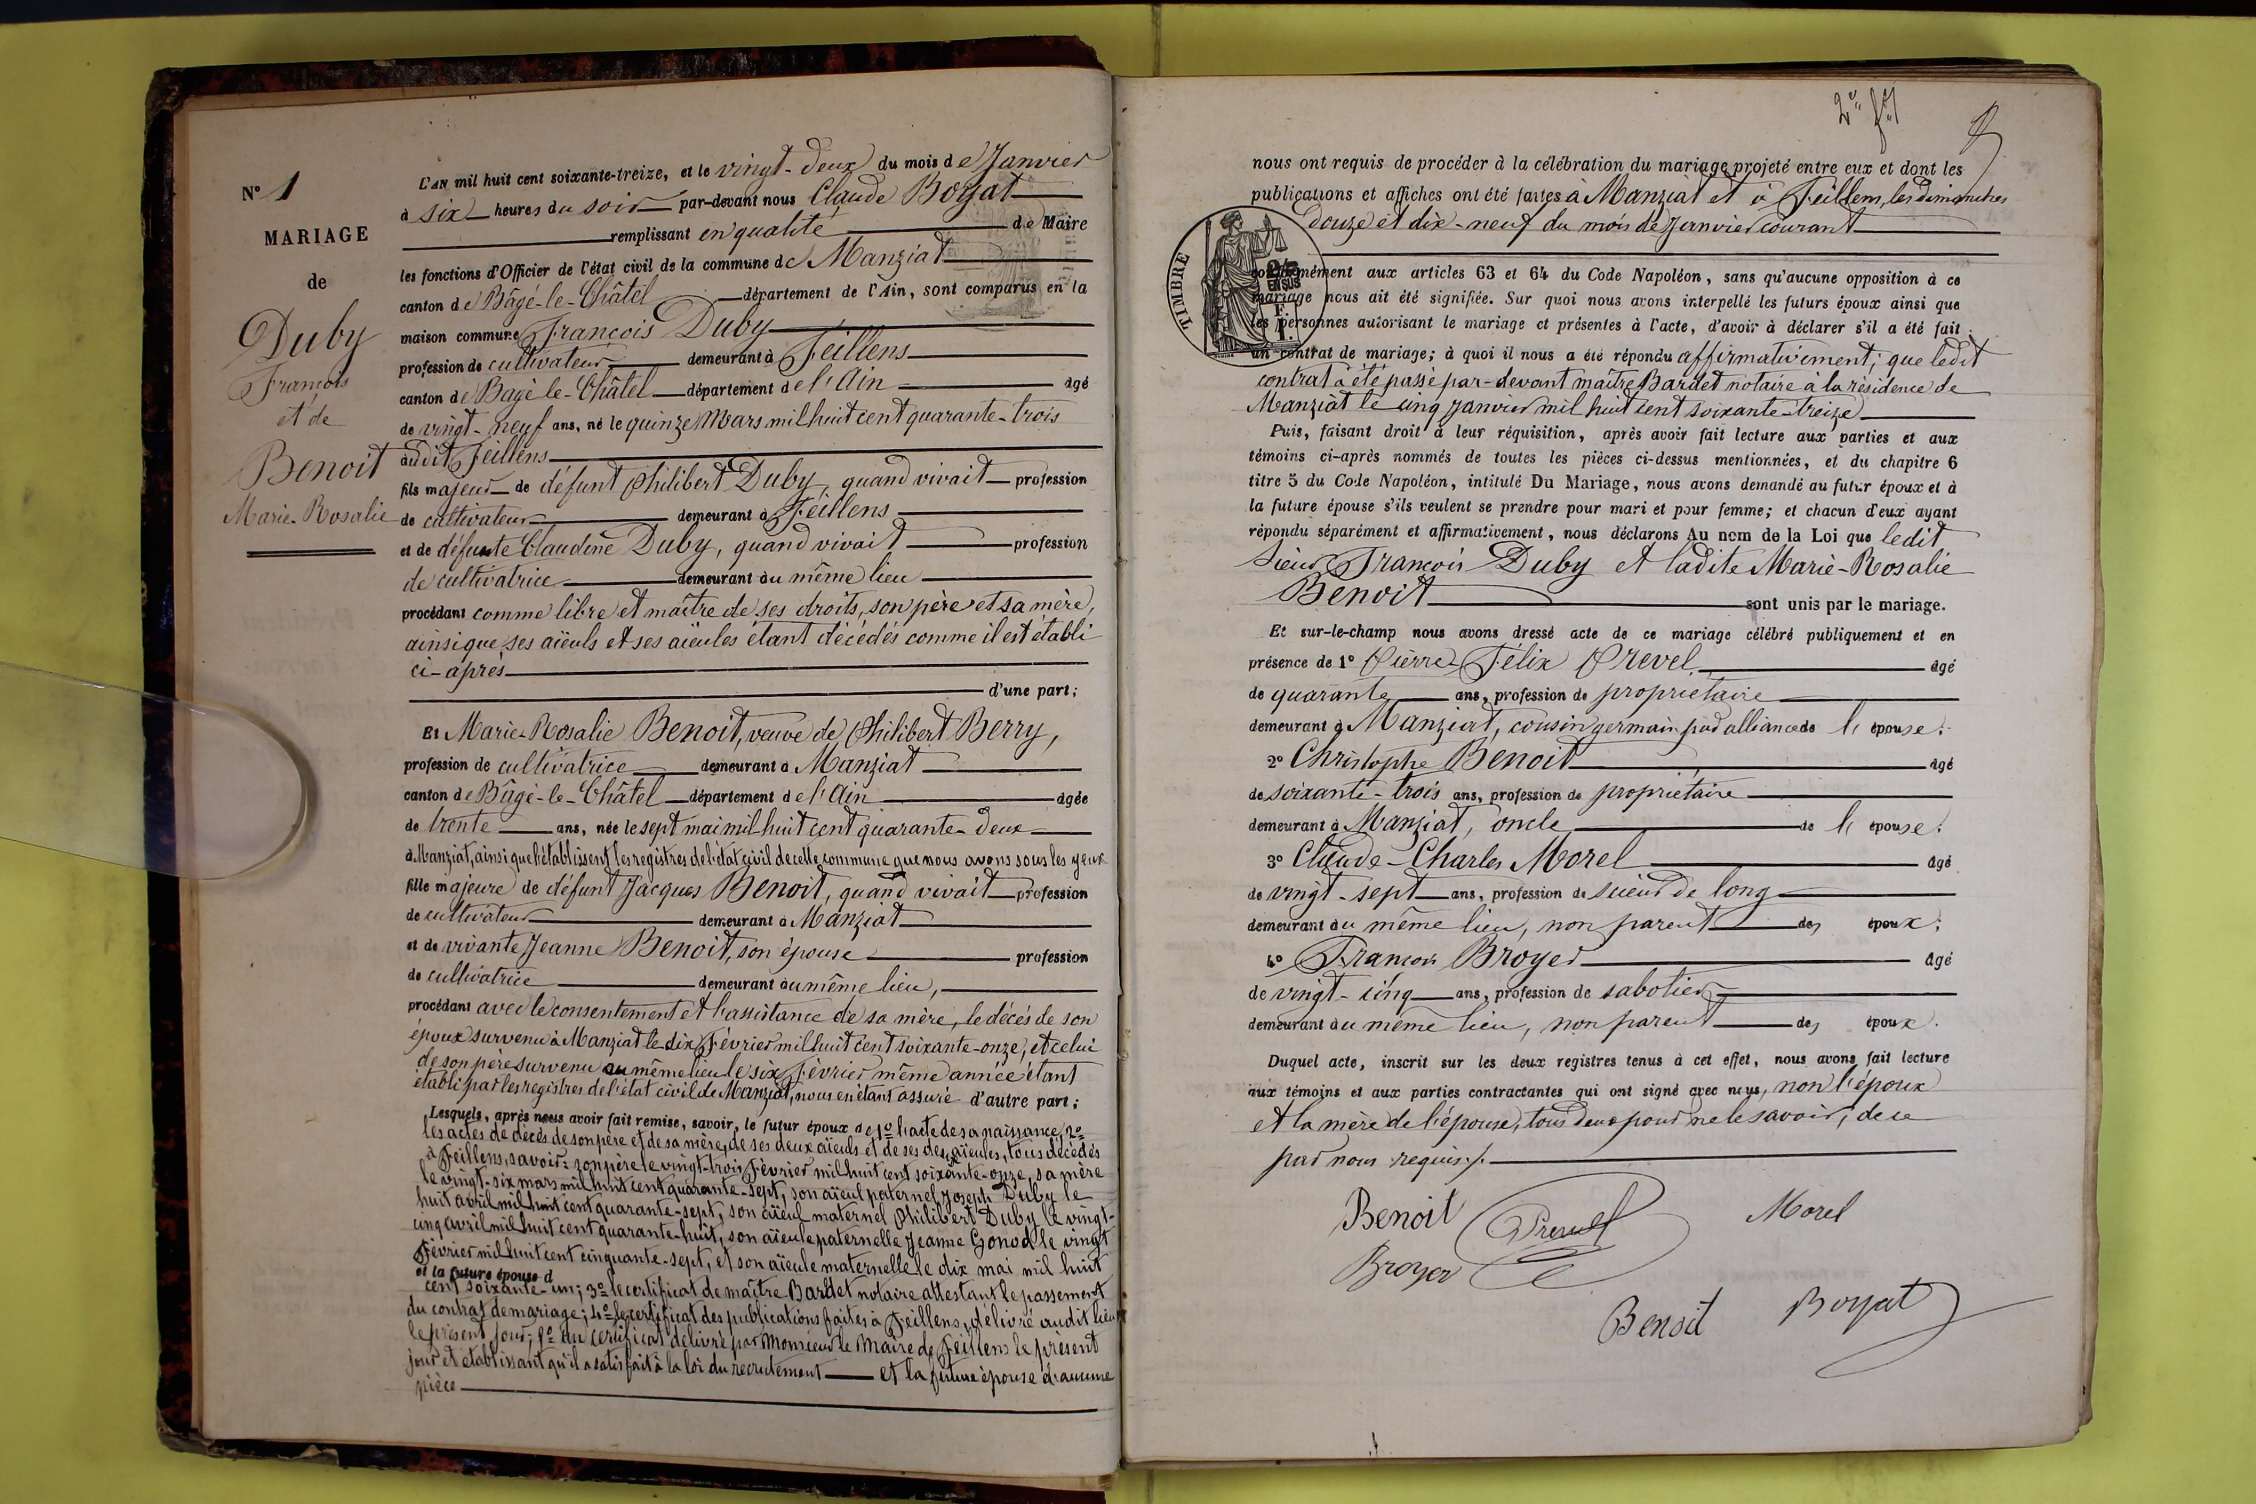 N° 1
MARIAGE
de
Duby
François
et de
Benoit
Marie-Rosalie
L'AN mil huit cent soixante-treize, et le vingt-deux du mois de Janvier
à six heures du soir par-devant nous Claude Boyat
remplissant en qualité de Maire
les fonctions d'Officier de l'état civil de la commune de Manziat
canton de Bâgé-le-Châtel département de l'Ain, sont comparus en la
maison commune François Duby
profession de cultivateur demeurant à Feillens
canton de Bagé-le-Châtel département de l'Ain agé
de vingt-neuf ans, né le quinze Mars mil huit cent quarante-trois
audit Feillens
fils majeur de défunt Philibert Duby, quand vivait profession
de cultivateur demeurant à Feillens
et de défunte Claudine Duby, quand vivait profession
de cultivatrice demeurant au même lieu
procédant comme libre et maître de ses droits, son père et sa mère,
ainsi que ses aïeuls et ses aïeules étant décédés comme il est établi
ci-après
d'une part;
Et Marie-Rosalie Benoit, veuve de Philibert Berry,
profession de cultivatrice demeurant à Manziat
canton de Bâgé-le-Châtel département de l'Ain agée
de trente ans, née le sept mai mil huit cent quarante-deux
à Manziat, ainsi que l'établissent les registres de l'état civil de cette commune que nous avons sous les yeux
fille majeure de défunt Jacques Benoit, quand vivait profession
de cultivateur demeurant à Manziat
et de vivante Jeanne Benoit, son épouse profession
de cultivatrice demeurant au même lieu,
procédant avec le consentement et l'assistance de sa mère, le décés de son
époux survenu à Manziat le dix Février mil huit cent soixante-onze, et celui
de son père survenu au même lieu le six Février même année étant
établi par les registres de l'état civil de Manziat, nous en étant assuré d'autre part;
Lesquels, après nous avoir fait remise, savoir, le futur époux de 1° l'acte de sa naissance; 2°
les actes de décès de son père et de sa mère, de ses deux aïeuls et de ses deux aïeules, tous décédés
à Feillens, savoir: son père le vingt-trois Février mil huit cent soixante-onze, sa mère
le vingt-six mars mil huit cent quarante-sept, son aïeul paternel Joseph Duby le
huit avril mil huit cent quarante-sept, son aïeul maternel Philibert Duby le vingt-
cinq avril mil huit cent quarante-huit, son aïeule paternelle Jeanne Gonod le vingt
Février mil huit cent cinquante-sept, et son aïeule maternelle le dix mai mil huit
et la future épouse d
cent soixante-un; 3° le certificat de maître Bardet notaire attestant le passement
du contrat de mariage; 4° le certificat des publications faites à Feillens, délivré audit lieu
le présent jour; 5° un certificat délivré par Monsieur le Maire de Feillens le présent
jour et établissant qu'il a satisfait à la loi du recrutement et la future épouse d'aucune
pièce
2e fet
nous ont requis de procéder à la célébration du mariage projeté entre eux et dont les
publications et affiches ont été faites à Manziat et à Feillens, les dimanches
douze et dix-neuf du mois de Janvier courant
TIMBRE
conformément aux articles 63 et 64 du Code Napoléon, sans qu'aucune opposition à ce
mariage nous ait été signifiée. Sur quoi nous avons interpellé les futurs époux ainsi que
les personnes autorisant le mariage et présentes à l'acte, d'avoir à déclarer s'il a été fait
un contrat de mariage; à quoi il nous a été répondu affirmativement; que ledit
contrat a été passé par-devant maître Bardet notaire à la résidence de
Manziat le cinq Janvier mil huit cent soixante-treize
Puis, faisant droit à leur réquisition, après avoir fait lecture aux parties et aux
témoins ci-après nommés de toutes les pièces ci-dessus mentionnées, et du chapitre 6
titre 5 du Code Napoléon, intitulé Du Mariage, nous avons demandé au futur époux et à
la future épouse s'ils veulent se prendre pour mari et pour femme; et chacun d'eux ayant
répondu séparément et affirmativement, nous déclarons Au nom de la Loi que ledit
sieur François Duby et ladite Marie-Rosalie
Benoit sont unis par le mariage.
Et sur-le-champ nous avons dressé acte de ce mariage célébré publiquement et en
présence de 1° Pierre-Félix Prevel agé
de quarante ans, profession de propriétaire
demeurant à Manziat, cousin germain par alliance de l'épouse;
2° Christophe Benoit agé
de soixante-trois ans, profession de propriétaire
demeurant à Manziat, oncle de l'épouse;
3° Claude-Charles Morel agé
de vingt-sept ans, profession de scieur de long
demeurant au même lieu, non parent des époux;
4° François Broyer agé
de vingt-cinq ans, profession de sabotier
demeurant au même lieu, non parent des époux.
Duquel acte, inscrit sur les deux registres tenus à cet effet, nous avons fait lecture
aux témoins et aux parties contractantes qui ont signé avec nous, non l'époux
et la mère de l'épouse, tous deux pour ne le savoir, de ce
par nous requis.
Benoit Prevel Morel
Broyer
Benoit Boyat